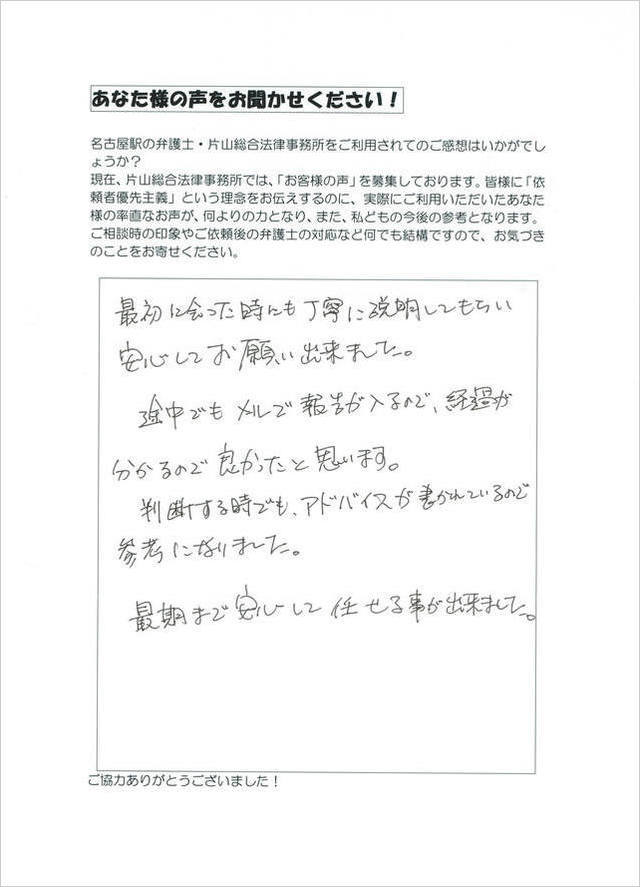 あなた様の声をお聞かせください！
名古屋駅の弁護士・片山総合法律事務所をご利用されてのご感想はいかがでし
ょうか？
現在、片山総合法律事務所では、「お客様の声」を募集しております。皆様に「依
頼者優先主義」という理念をお伝えするのに、実際にご利用いただいたあなた
様の率直なお声が、何よりの力となり、また、私どもの今後の参考となります。
ご相談時の印象やご依頼後の弁護士の対応など何でも結構ですので、お気づき
のことをお寄せください。
最初に会った時にも丁寧に説明してもらい
安心してお願い出来ました。
途中でもメルで報告が入るので、経過が
分かるので良かったと思います。
判断する時でも、アドバイスが書かれているので
参考になりました。
最期まで安心して任せる事が出来ました。
ご協力ありがとうございました！